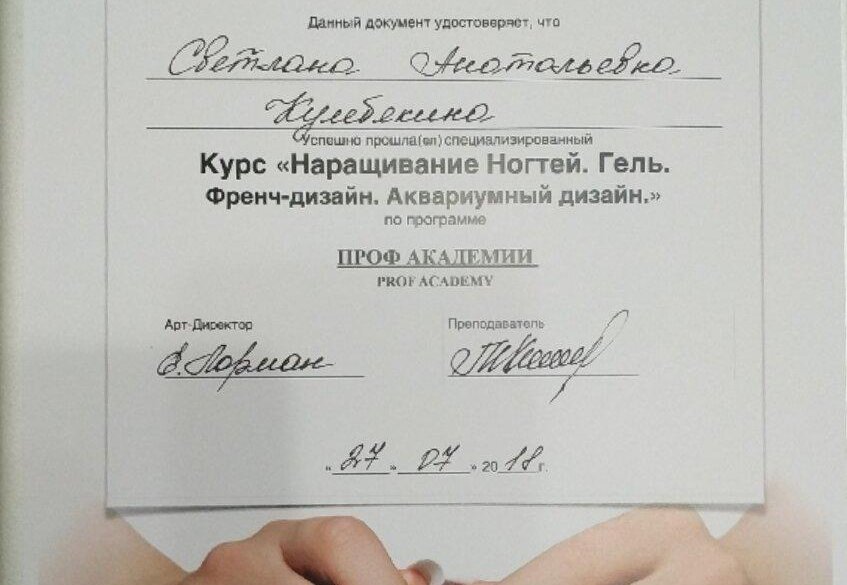 Данный документ удостоверяет, что
Светлана Анатольевна
Кулебякина
Успешно прошла(ел) специализированный
Курс «Наращивание Ногтей. Гель.
Френч-дизайн. Аквариумный дизайн.»
по программе
ПРОФ АКАДЕМИИ
PROF ACADEMY
Арт-Директор Преподаватель
Е. Лорман
« 27 » 07 » 20 18 г.